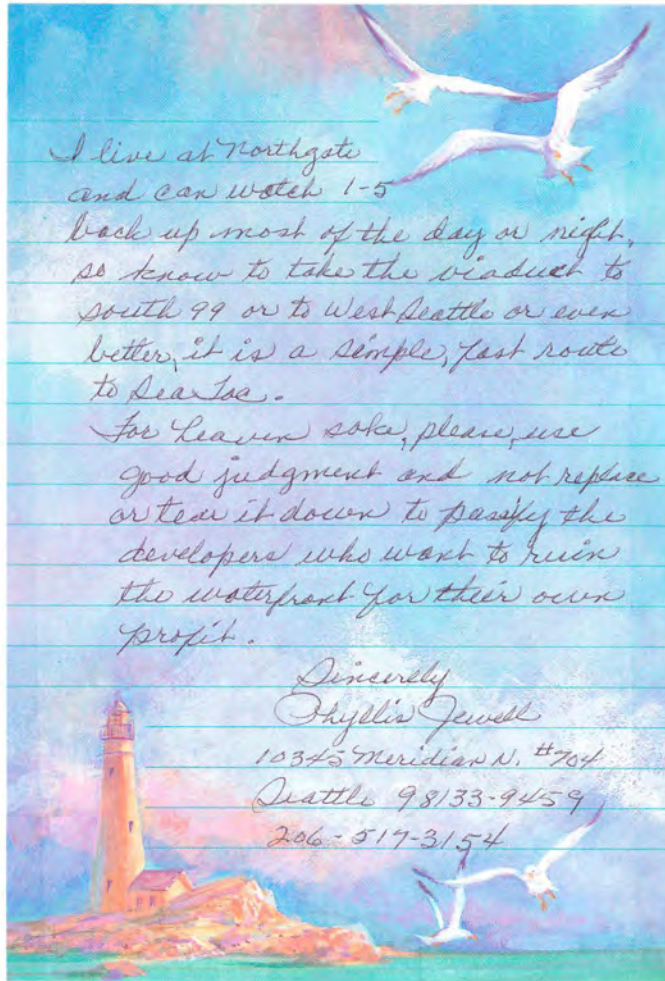 I live at Northgate
and can watch I-5
back up most of the day or night,
so know to take the viaduct to
south 99 or to West Seattle or even
better, it is a simple, fast route
to Sea Tac.
For heaven sake, please, use
good judgment and not replace
or tear it down to passify the
developers who want to ruin
the waterfront for their own
profit.
Sincerely
Phyllis Jewell
10345 Meridian N. #704
Seattle 98133-9459
206-517-3154